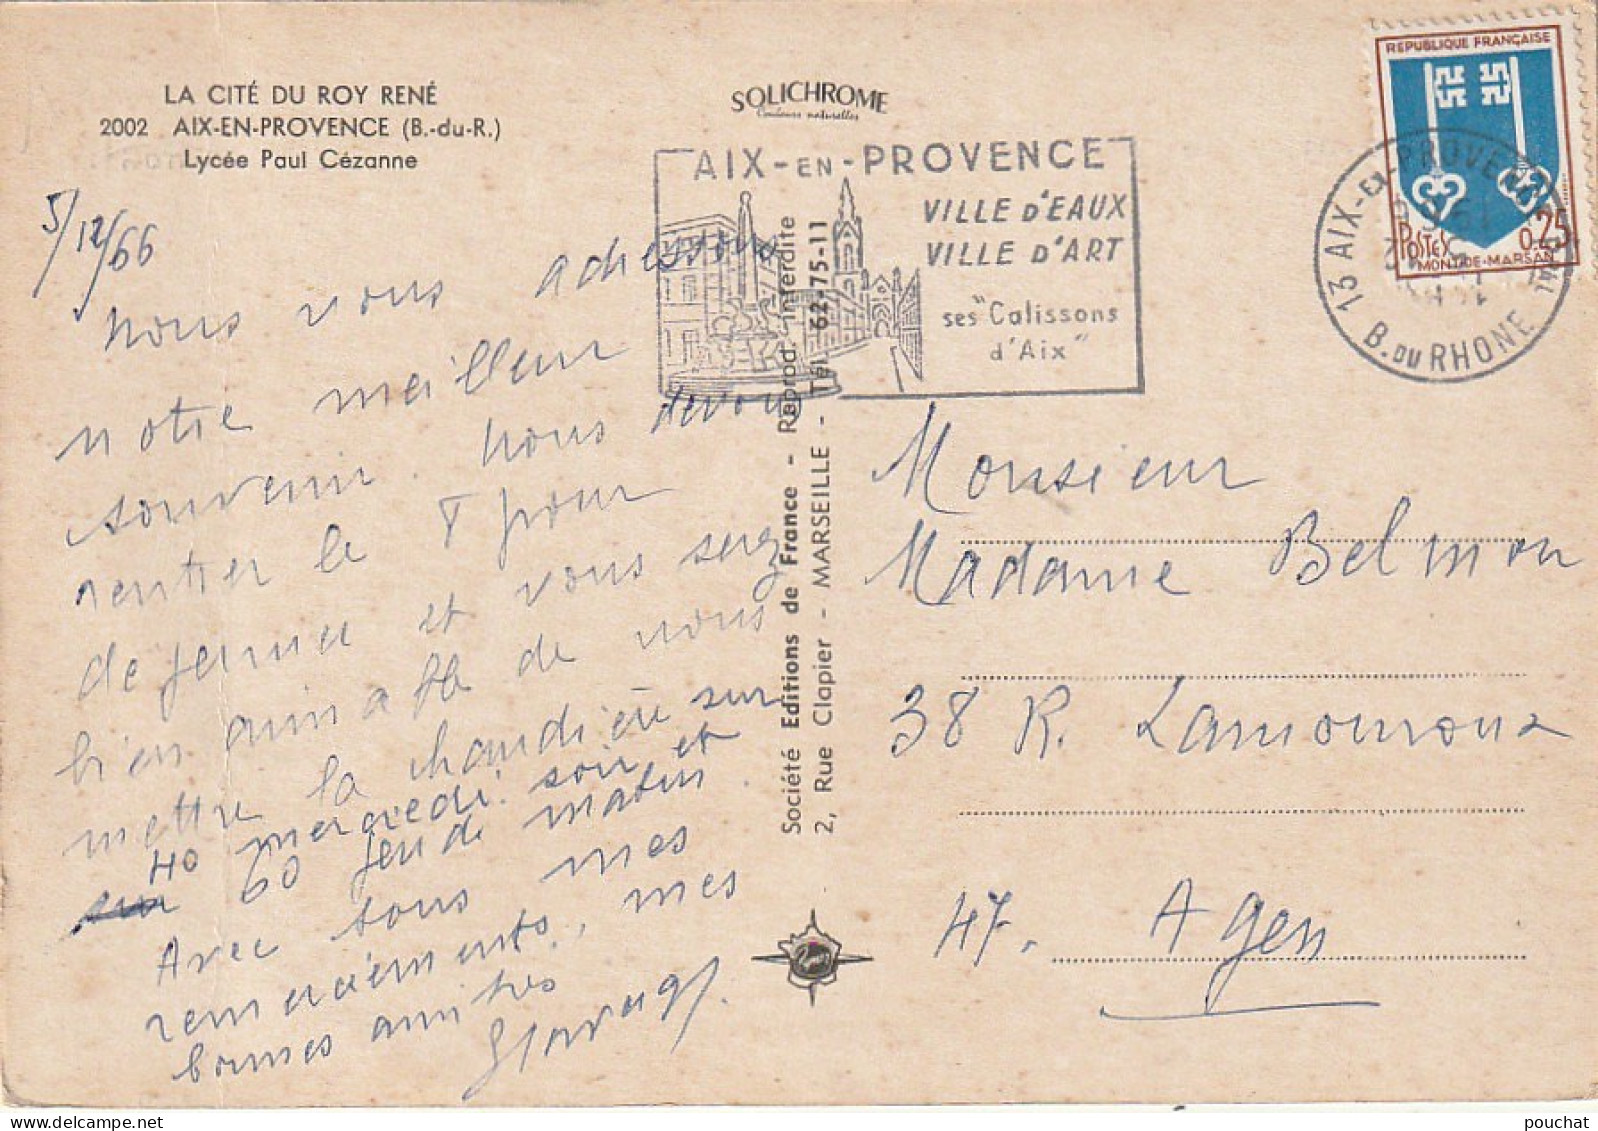 LA CITÉ DU ROY RENÉ
2002 AIX-EN-PROVENCE (B.-du-R.)
Lycée Paul Cézanne
SOLICHROME
Couleurs naturelles
AIX-EN-PROVENCE
VILLE D'EAUX
VILLE D'ART
ses "Calissons
d'Aix"
REPUBLIQUE FRANÇAISE
POSTES 0,25
MONT-DE-MARSAN
13 AIX-EN-PROVENCE
B. DU RHONE
5/12/66
Nous vous adressons
notre meilleur
souvenir. Nous devons
rentrer le 8 pour
dejeuner et vous serez
bien aimable de nous
mettre la chaudière sur
40 mercredi soir et
60 jeudi matin.
Avec tous mes
remerciements, mes
bonnes amitiés
Société Editions de France - Reprod. interdite
2, Rue Clapier - MARSEILLE - Tél. 62-75-11
Monsieur
Madame Belmon
38 R. Lamouroux
47. Agen
pouchat